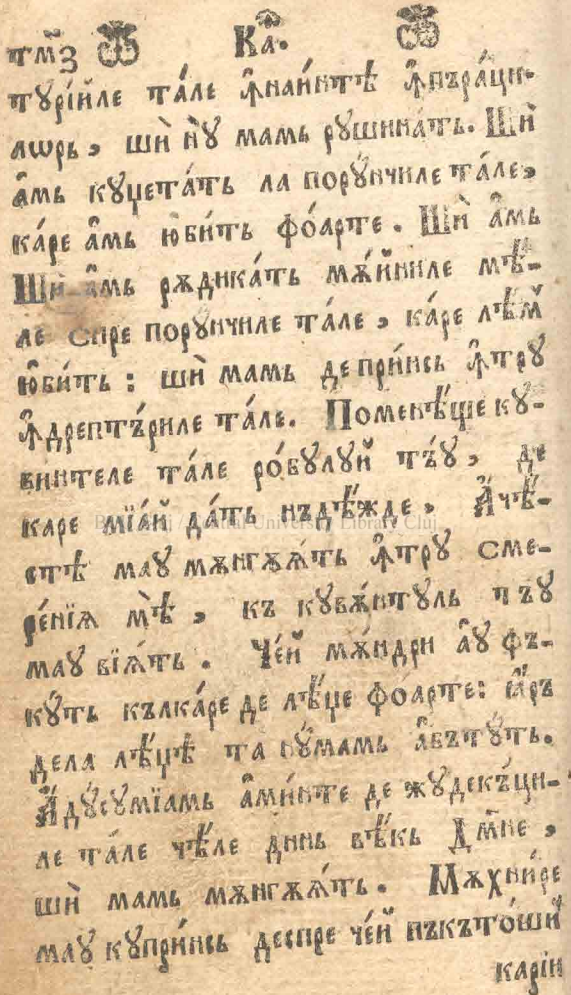 тм҃з Ка҃.
тꙋрі́йле та́ле ꙟ҆наи́нтѣ ꙟ҆пъра́ци-
лѡрь, шѝ нꙋ̀ мамь рꙋшина́ть. Шѝ
а҆́мь кꙋџета́ть ла порꙋ́нчиле та́ле,
ка́ре а҆́мь юби́ть фо́арте. Шѝ а҆́мь
Шѝ а҆́мь рѫдика́ть мѫ́йниле мѣ́-
ле спре порꙋ́нчиле та́ле, ка́ре лѣ́м
ю҆би́ть: шѝ мамь депри́нсь ꙟ҆трꙋ
ꙟ҆дрептъ́риле та́ле. Поменѣ́ще кꙋ-
винтеле та́ле ро́бꙋлꙋй тъ́ꙋ, де
каре мїа́й да́ть нъдѣ́жде. А҆чѣ́-
стѣ маꙋ мѫнгѫꙗ́ть ꙟ҆трꙋ сме-
ре́нїѧ мѣ̀, къ кꙋвѫ́нтꙋль тъꙋ
маꙋ вїꙗ́ть. Че́й мѫ́ндри а҆́ꙋ фъ-
кꙋ́ть кълка́ре де лѣ́џе фоарте: ꙗ҆́ръ
дела лѣ́џѣ та нꙋ́мамь а҆бътꙋ́ть.
А҆дꙋ́сꙋмїамь а҆ми́нте де жꙋдекъ́ци-
ле та́ле чѣ́ле динь вѣ́кь Дм҃не,
шѝ мамь мѫнгѫꙗ́ть. Мѫхни́ре
маꙋ кꙋпри́нсь деспре че́й пъкъто́ши
карїи